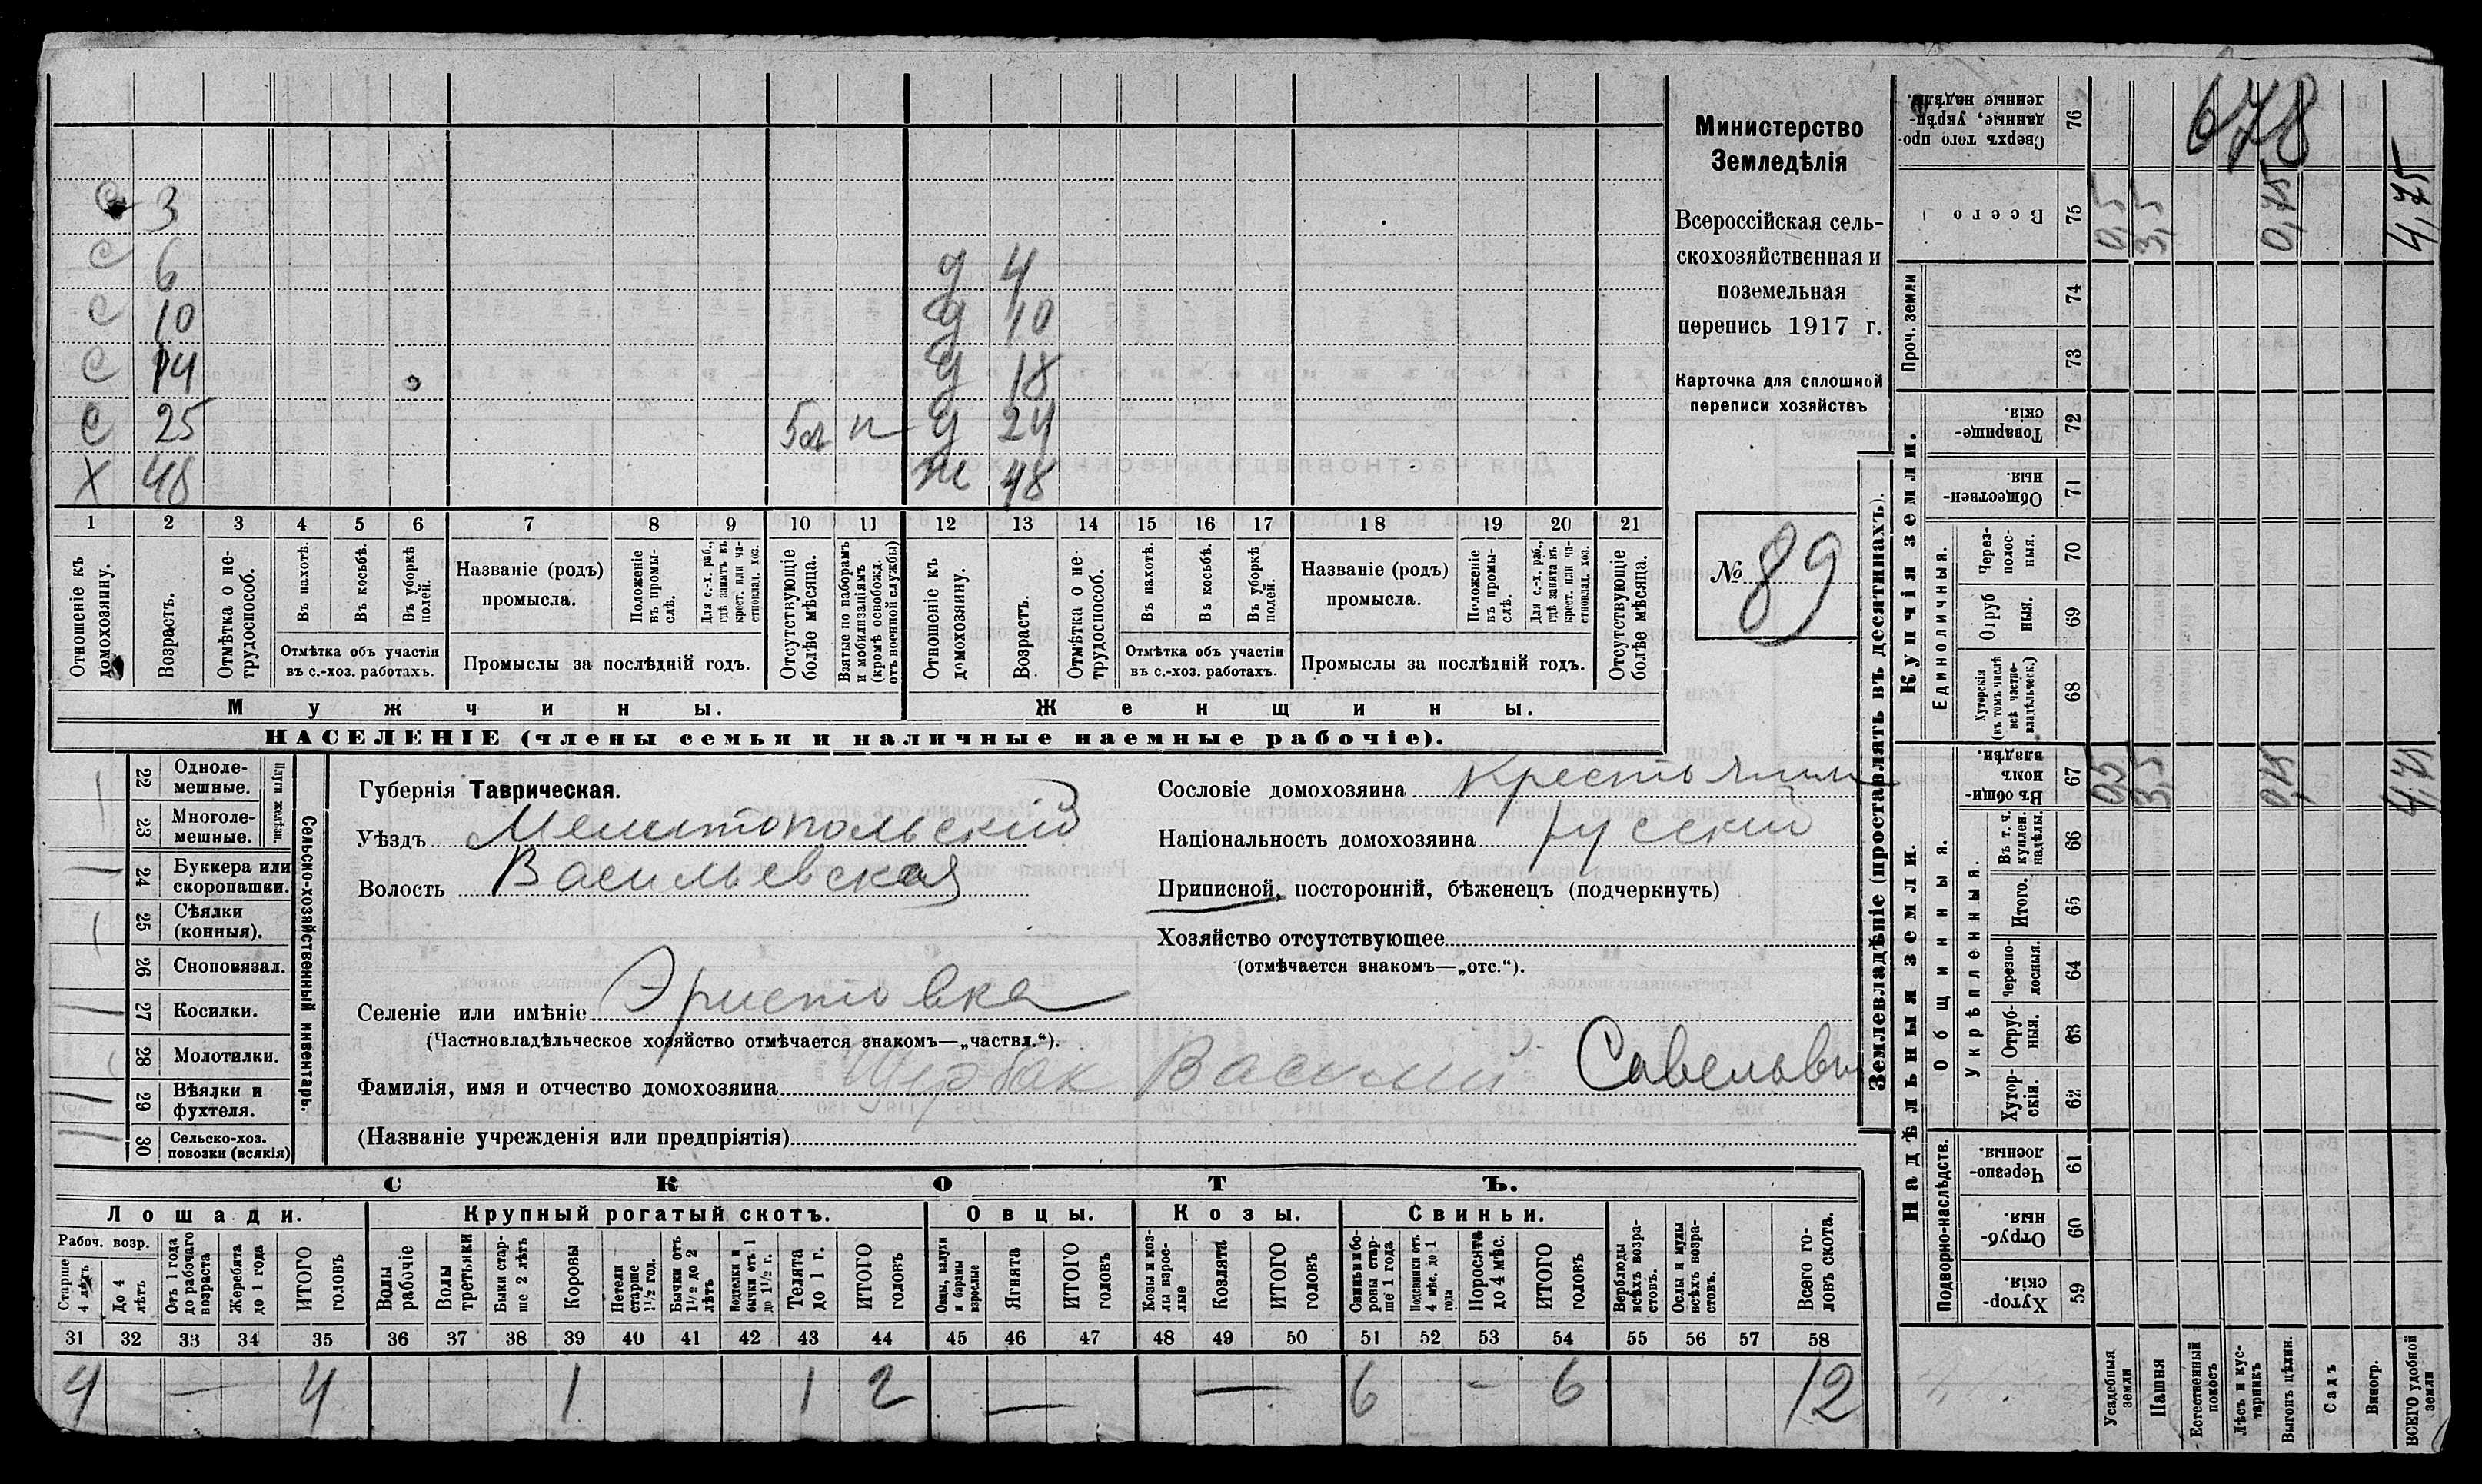 3
С 6 д 4
С 10 д 10
С 14 д 18
С 25 п д 24
Х 48 ж 48
1 2 3 4 5 6 7 8 9 10 11 12 13 14 15 16 17 18 19 20 21
Отношеніе къ домохозяину.
Возрастъ.
Отмѣтка о нетрудоспособ.
Въ пахотѣ.
Въ косьбѣ.
Въ уборкѣ полей.
Отмѣтка объ участіи
въ с.-хоз. работахъ.
Названіе (родъ)
промысла.
Положеніе въ промыслѣ.
Для с.-х. раб., гдѣ занятъ въ крест. или частновлад. хоз.
Промыслы за послѣдній годъ.
Отсутствующіе болѣе мѣсяца.
Взятые по наборамъ и мобилизаціямъ (кромѣ освобожд. отъ военной службы)
Отношеніе къ домохозяину.
Возрастъ.
Отмѣтка о нетрудоспособ.
Въ пахотѣ.
Въ косьбѣ.
Въ уборкѣ полей.
Отмѣтка объ участіи
въ с.-хоз. работахъ.
Названіе (родъ)
промысла.
Положеніе въ промыслѣ.
Для с.-х. раб., гдѣ занята въ крест. или частновлад. хоз.
Промыслы за послѣдній годъ.
Отсутствующіе болѣе мѣсяца.
Мужчины.
Женщины.
НАСЕЛЕНІЕ (члены семьи и наличные наемные рабочіе).
Министерство
Земледѣлія
Всероссійская сель-
скохозяйственная и
поземельная
перепись 1917 г.
Карточка для сплошной
переписи хозяйствъ
№ 89
22 Одноле-
мешные.
23 Многоле-
мешные.
Плуги желѣзн.
24 Буккера или
скоропашки.
25 Сѣялки
(конныя).
26 Сноповязал.
27 Косилки.
28 Молотилки.
29 Вѣялки и
фухтеля.
30 Сельско-хоз.
повозки (всякія)
Сельско-хозяйственный инвентарь.
Губернія Таврическая.
Уѣздъ Мелитопольский
Волость Васильевская
Селеніе или имѣніе Эристовка
(Частновладѣльческое хозяйство отмѣчается знакомъ—„частвл.“).
Фамилія, имя и отчество домохозяина Щербак Василий Савельевич
(Названіе учрежденія или предпріятія)
Сословіе домохозяина крестьянин
Національность домохозяина русский
Приписной, посторонній, бѣженецъ (подчеркнуть)
Хозяйство отсутствующее
(отмѣчается знакомъ—„отс.“).
СКОТЪ.
Лошади. Крупный рогатый скотъ. Овцы. Козы. Свиньи.
Рабоч. возр.
Старше 4 лѣтъ
До 4 лѣтъ
Отъ 1 года до рабочаго возраста
Жеребята до 1 года
ИТОГО головъ
Волы рабочіе
Волы третьяки
Быки старше 2 лѣтъ
Коровы
Нетели старше 1½ год.
Бычки отъ 1½ до 2 лѣтъ
Подтелки и бычки отъ 1 до 1½ г.
Телята до 1 г.
ИТОГО головъ
Овцы, валухи и бараны взрослые
Ягнята
ИТОГО головъ
Козы и козлы взрослые
Козлята
ИТОГО головъ
Свиньи и боровы старше 1 года
Подсвинки отъ 4 мѣс. до 1 года
Поросята до 4 мѣс.
ИТОГО головъ
Верблюды всѣхъ возрастовъ.
Ослы и мулы всѣхъ возрастовъ.
Всего головъ скота.
31 32 33 34 35 36 37 38 39 40 41 42 43 44 45 46 47 48 49 50 51 52 53 54 55 56 57 58
4 — 4 1 1 2 — — 6 - 6 12
Землевладѣніе (проставлять въ десятинахъ).
Надѣльныя земли.
Купчія земли.
Проч. земли
678
Сверхъ того проданные, укрѣпленные надѣлы. 76
Всего 75 0,5 3,5 0,75 4,75
74
73
Товарищескія. 72
Общественныя. 71
Единоличныя.
Черезполосныя. 70
Отрубныя. 69
Хуторскія (въ томъ числѣ всѣ частновладѣльческ.) 68
Въ общинномъ владѣн. 67 0,5 3,5 0,75 4,75
Общинныя.
Укрѣпленныя.
Въ т. ч. куплен. надѣлы. 66
Итого. 65
Черезполосныя. 64
Отрубныя. 63
Хуторскія. 62
Подворно-наслѣдств.
Черезполосныя. 61
Отрубныя. 60
Хуторскія. 59
Усадебныя земли
Пашня
Естественный покосъ
Лѣсъ и кустарникъ
Выгонъ цѣлин.
Садъ
Виногр.
ВСЕГО удобной земли